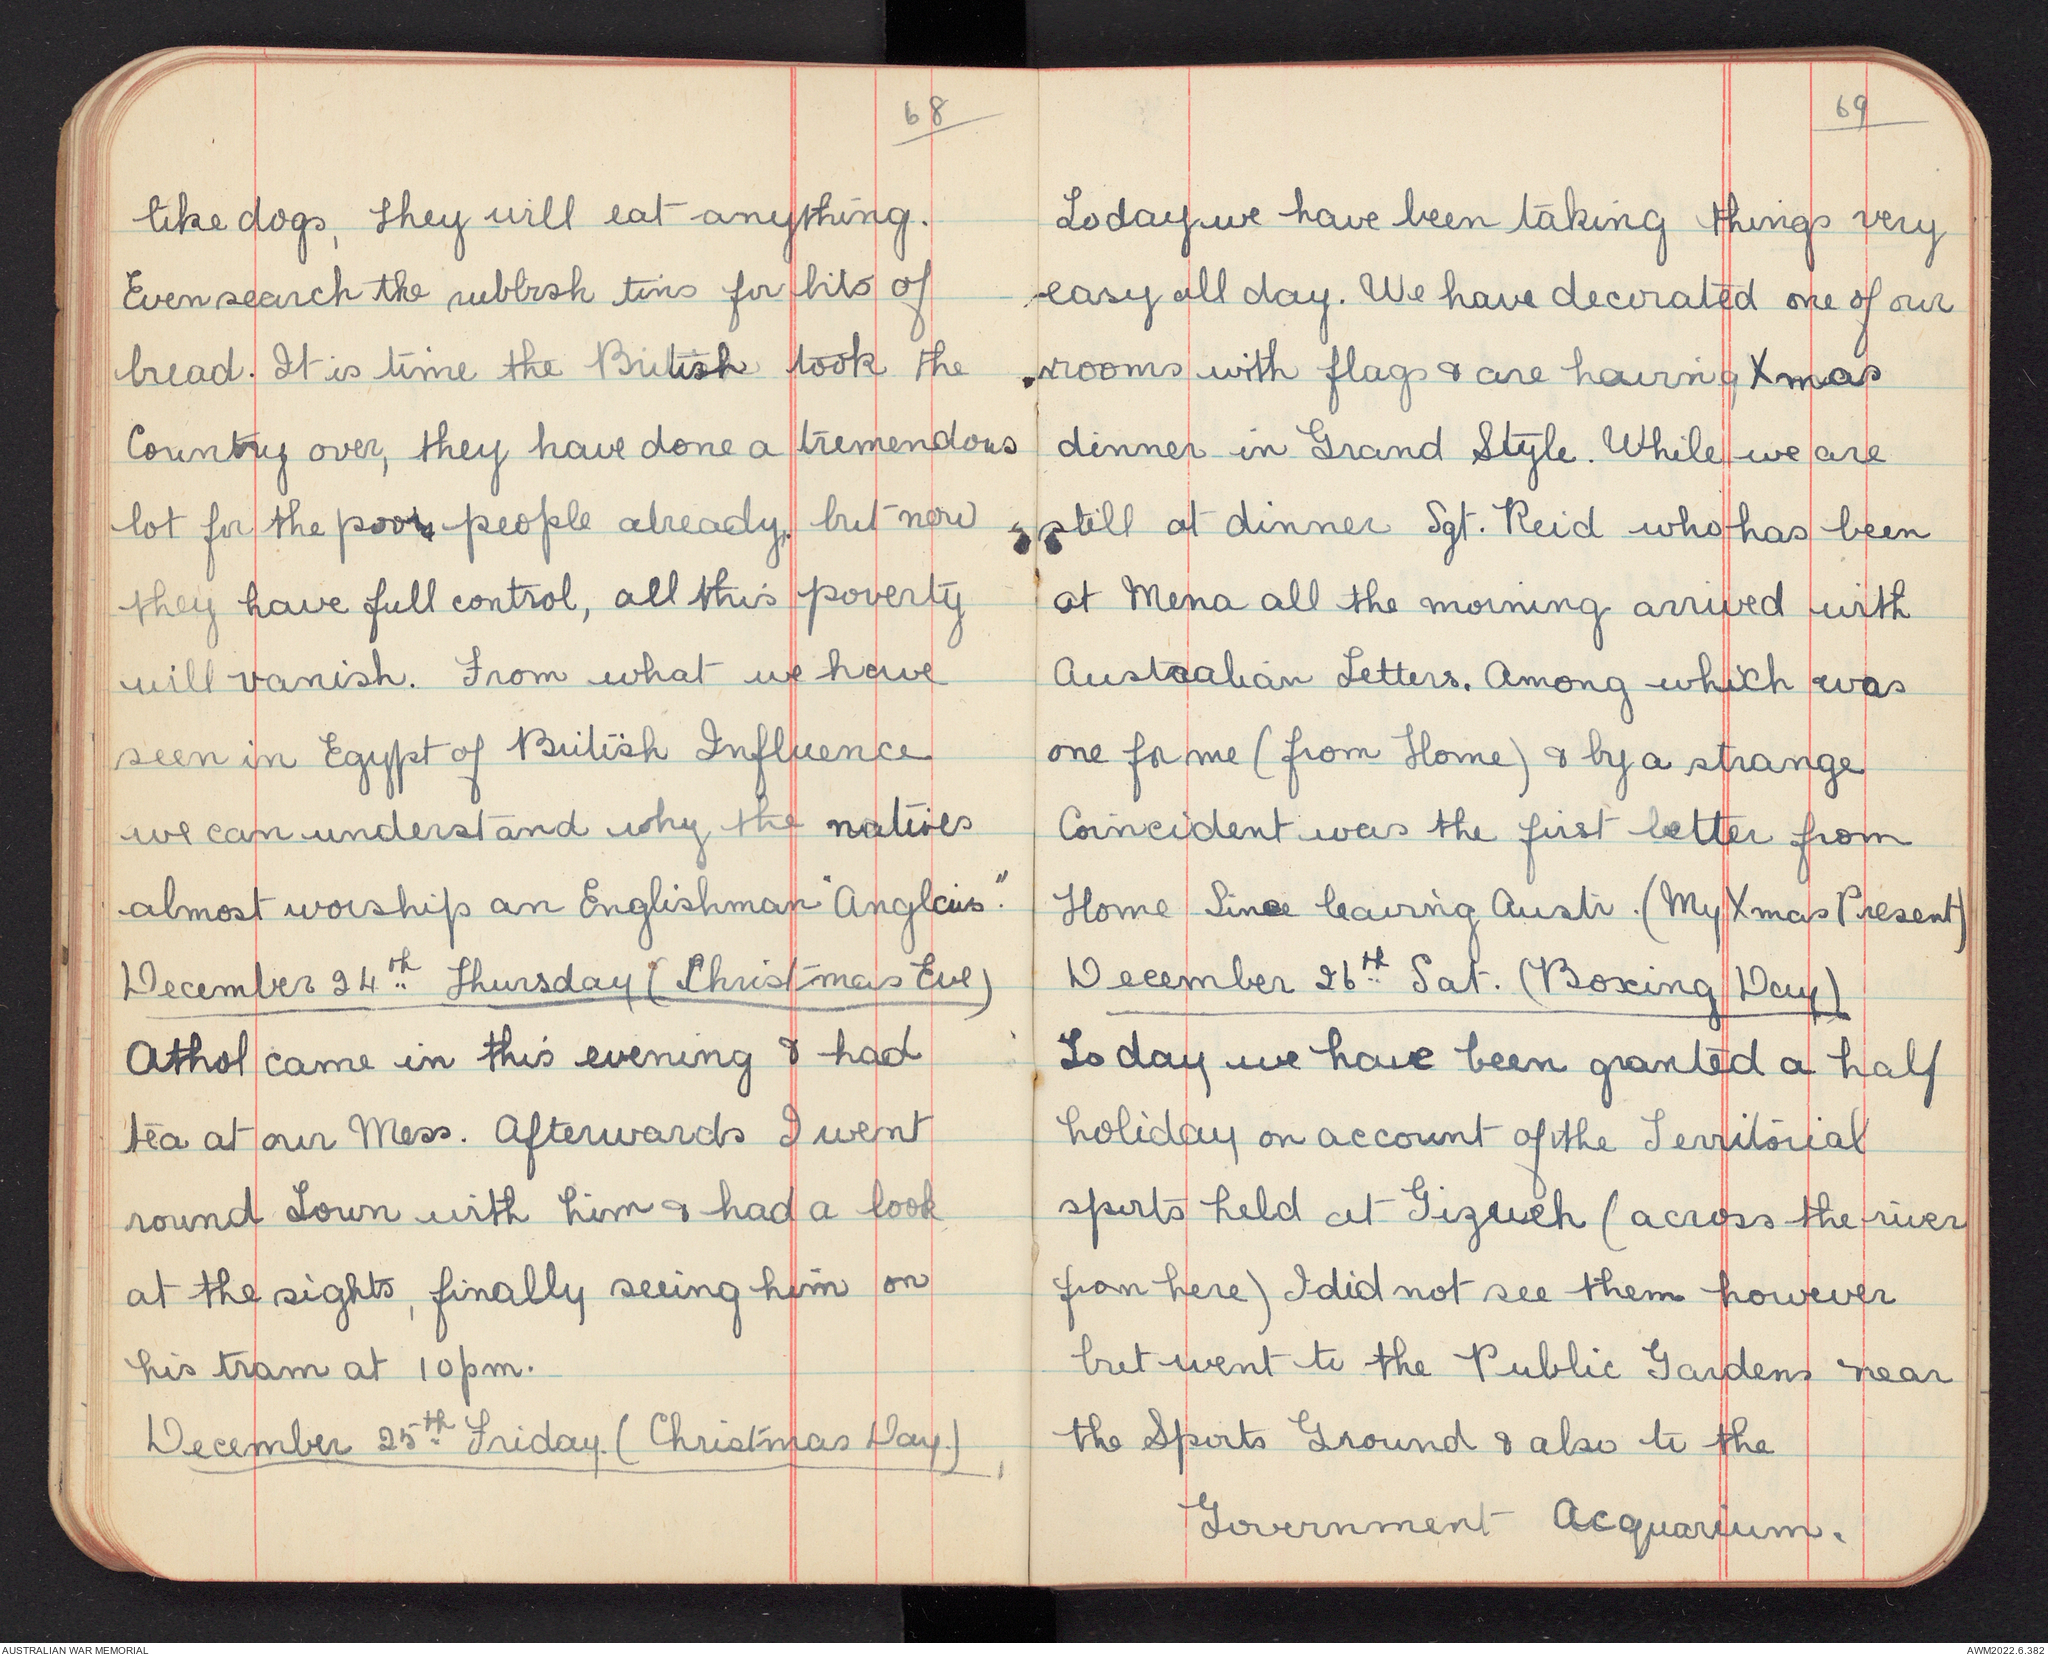 68
like dogs, they will eat anything.
Even search the rubbish tins for bits of
bread. It is time the British took the
Country over, they have done a tremendous
lot for the poor people already, but now
they have full control, all this poverty
will vanish. From what we have
seen in Egypt of British Influence
we can understand why the natives
almost worship an Englishman "Anglais."
December 24th Thursday (Christmas Eve)
Athol came in this evening & had
tea at our Mess. Afterwards I went
round Town with him & had a look
at the sights, finally seeing him on
his tram at 10 pm.
December 25th Friday. (Christmas Day.)
69
Today we have been taking things very
easy all day. We have decorated one of our
rooms with flags & are having Xmas
dinner in Grand Style. While we are
still at dinner Sgt. Reid who has been
at Mena all the morning arrived with
Australian Letters. Among which was
one for me (from Home) & by a strange
Coincident was the first letter from
Home Since leaving Austr. (My Xmas Present)
December 26th Sat. (Boxing Day)
To day we have been granted a half
holiday on account of the Territorial
sports held at Gizueh (across the river
from here) I did not see them however
but went to the Public Gardens near
the Sports Ground & also to the
Government Acquarium.
AUSTRALIAN WAR MEMORIAL
AWM2022.6.382